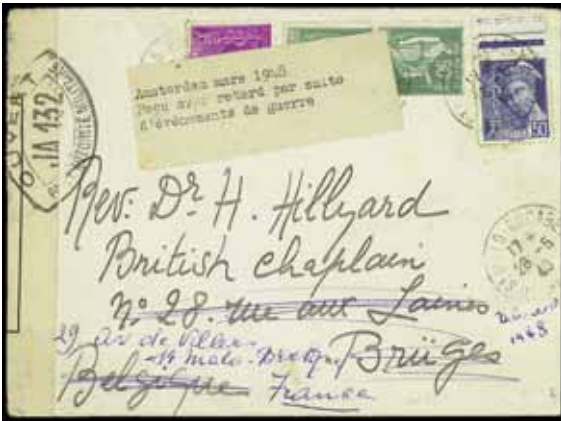 OUVERT
JA 132
Amsterdam mars 1948
Reçu avec retard par suite
d'événements de guerre
50
Rev: Dr H. Hillyard
British Chaplain
No 28. rue aux Laines
29 av de
St Malo. France
Brüges
Belgique
17
28-5
40
1948